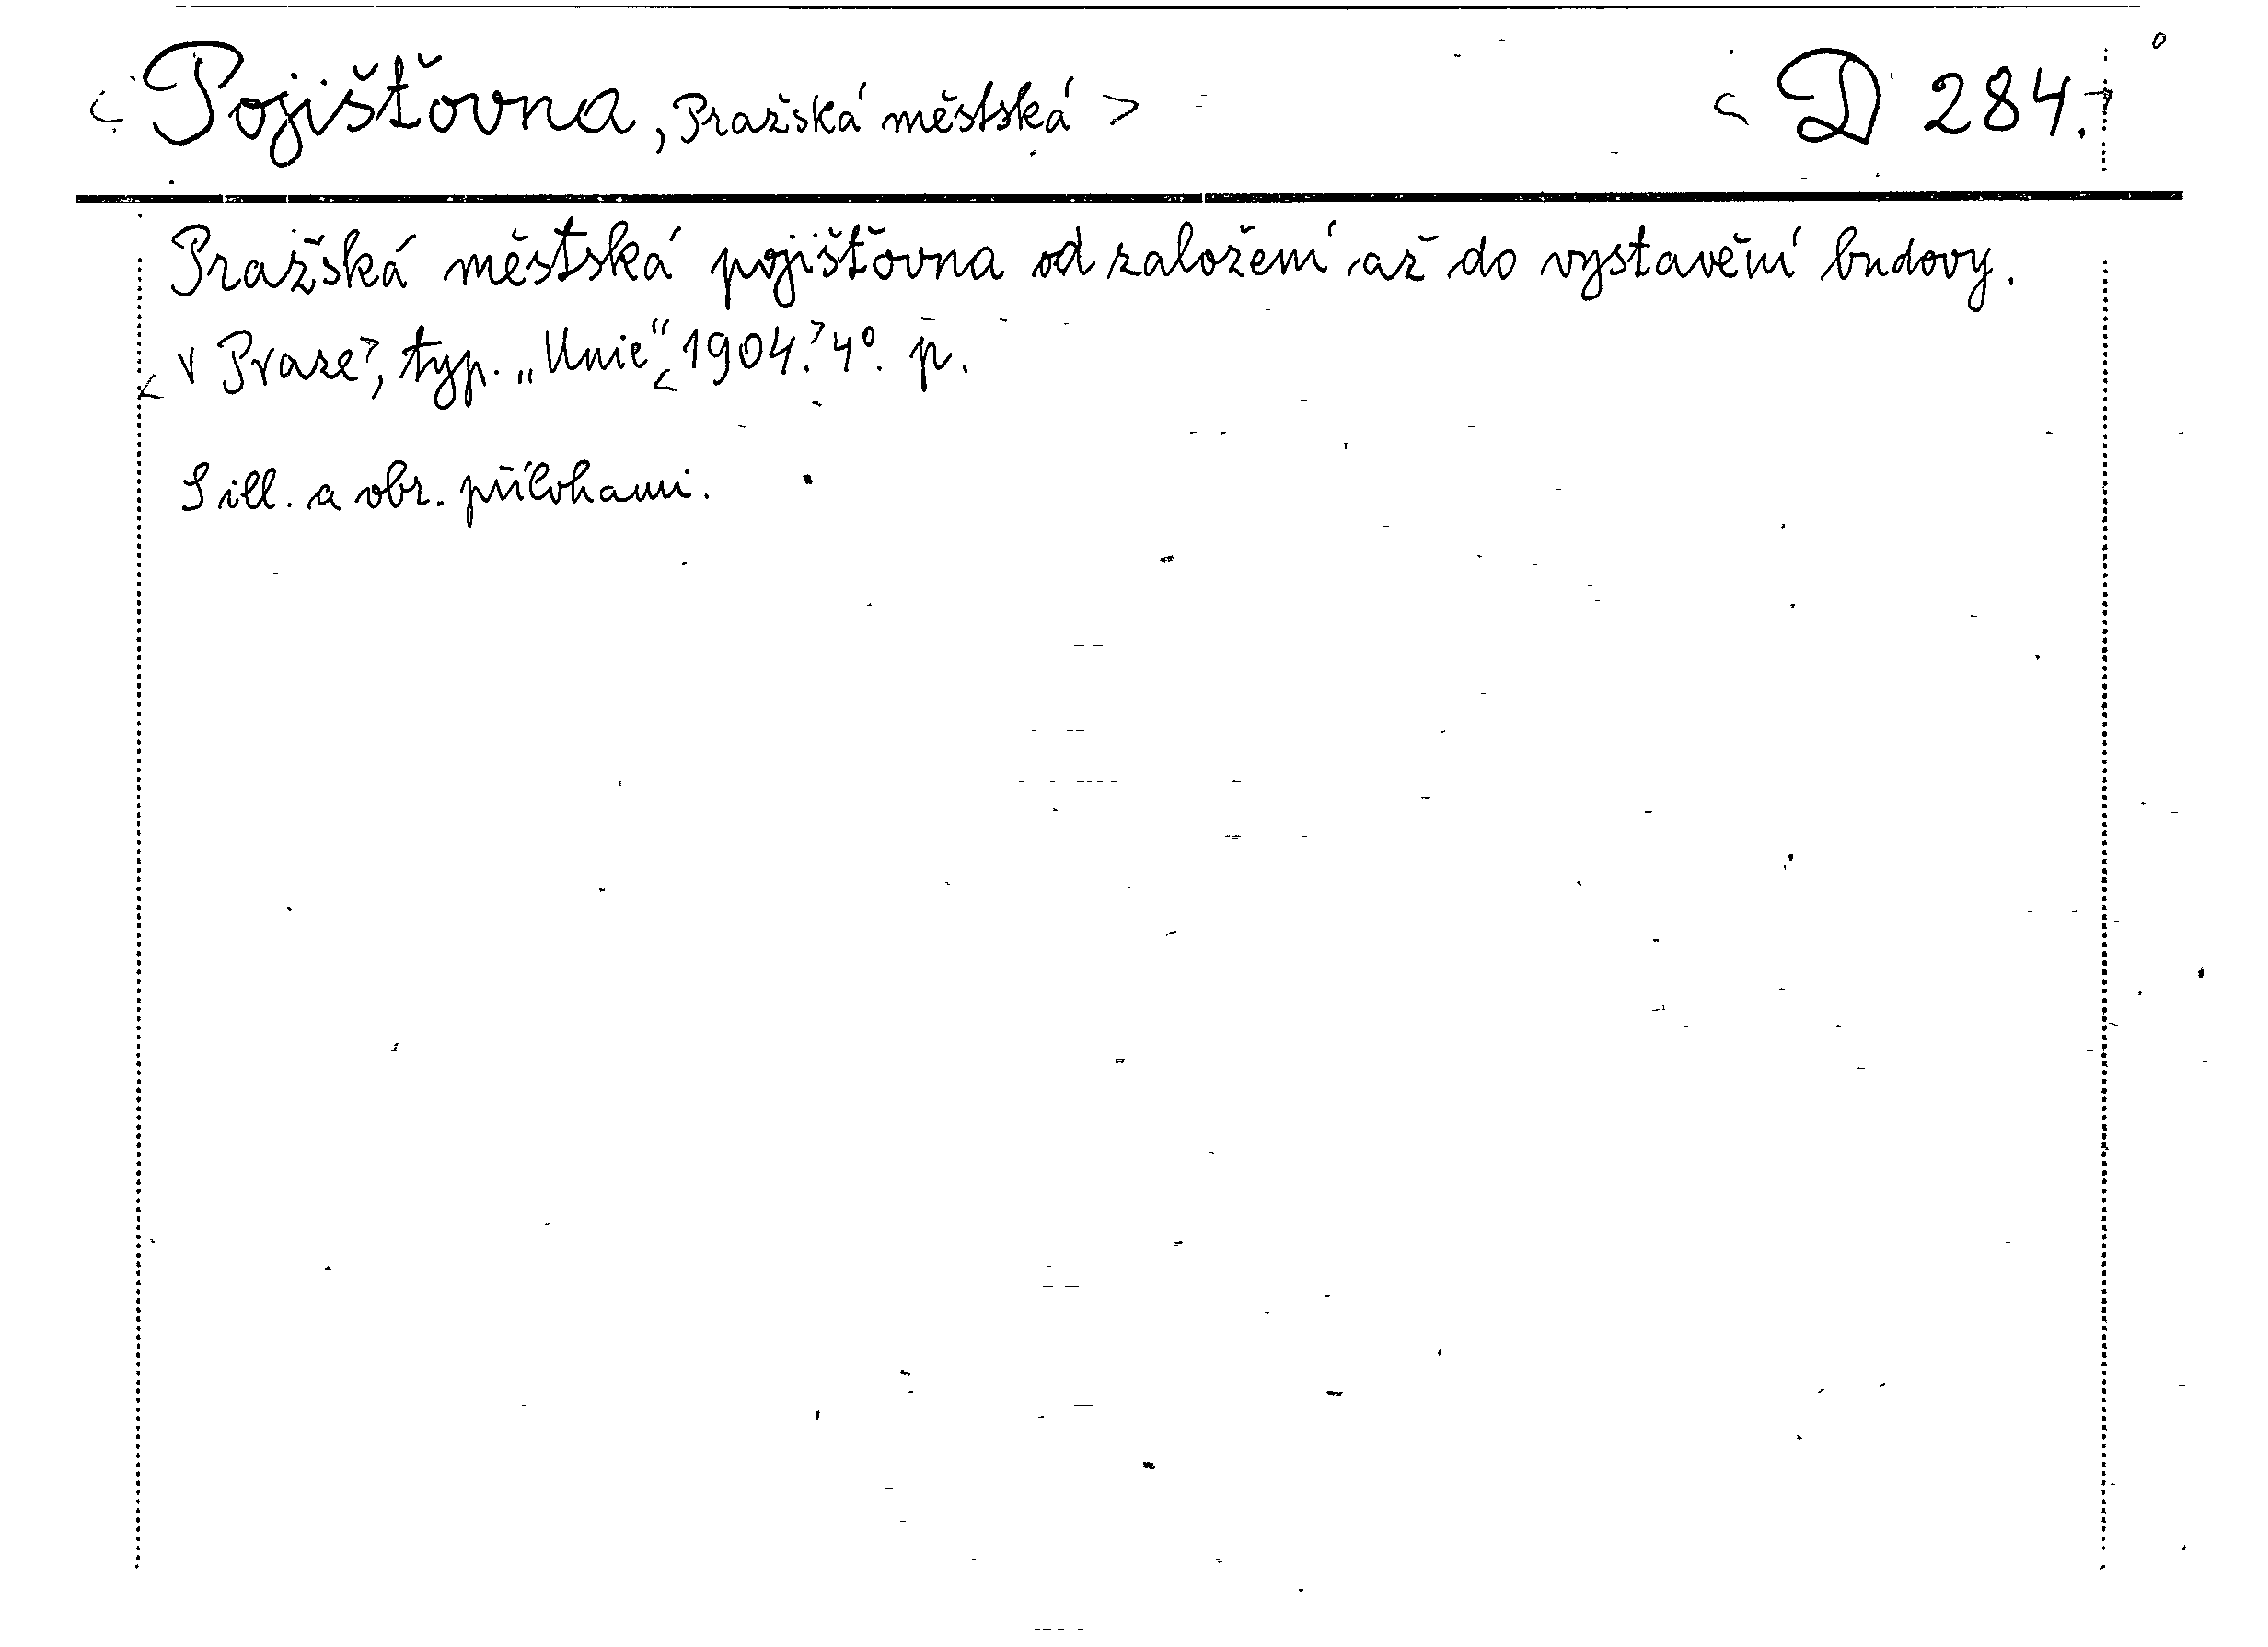 < Pojišťovna, Pražská městská > < D 284. >
Pražská městská pojišťovna od založení až do vystavění budovy.
< V Praze >, typ. „Unie“ < 1904. > 4°. p.
S ill. a obr. přílohami.